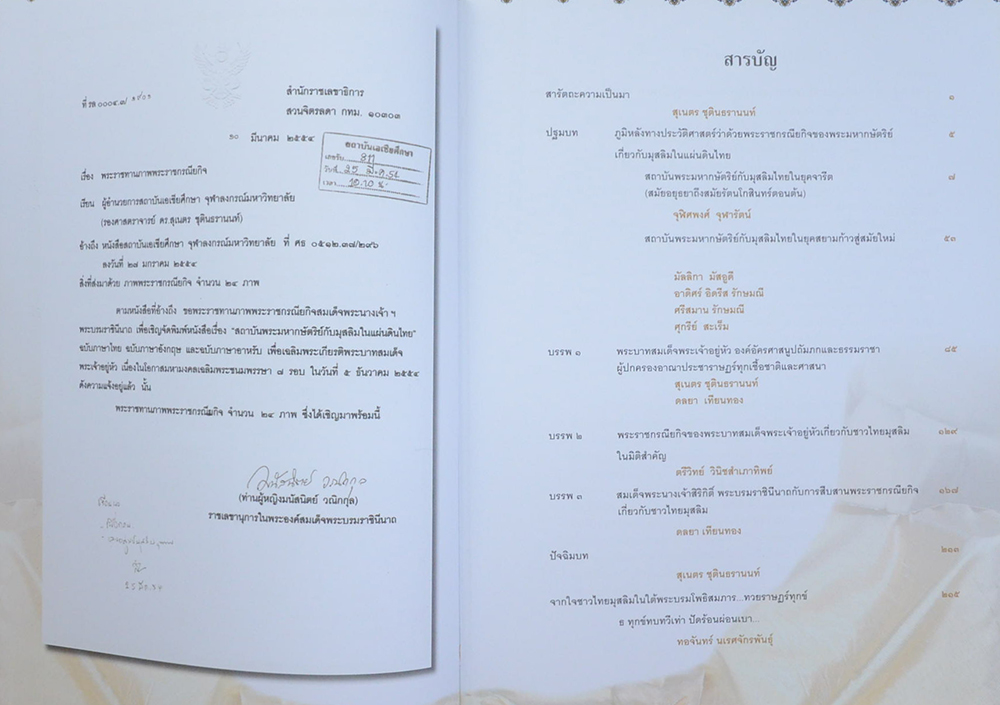 ที่ รล ๐๐๐๔.๗/
สำนักราชเลขาธิการ
สวนจิตรลดา กทม. ๑๐๓๐๓
๓๐ มีนาคม ๒๕๕๔
สถาบันเอเชียศึกษา
เลขรับ 311
วันที่ 25 มี.ค. 54
เวลา 10.10 น.
เรื่อง พระราชทานภาพพระราชกรณียกิจ
เรียน ผู้อำนวยการสถาบันเอเชียศึกษา จุฬาลงกรณ์มหาวิทยาลัย
(รองศาสตราจารย์ ดร.สุเนตร ชุตินธรานนท์)
อ้างถึง หนังสือสถาบันเอเชียศึกษา จุฬาลงกรณ์มหาวิทยาลัย ที่ ศธ ๐๕๑๒.๓๗/๒๙๖
ลงวันที่ ๒๗ มกราคม ๒๕๕๔
สิ่งที่ส่งมาด้วย ภาพพระราชกรณียกิจ จำนวน ๒๔ ภาพ
ตามหนังสือที่อ้างถึง ขอพระราชทานภาพพระราชกรณียกิจสมเด็จพระนางเจ้า ฯ
พระบรมราชินีนาถ เพื่อเชิญจัดพิมพ์หนังสือเรื่อง "สถาบันพระมหากษัตริย์กับมุสลิมในแผ่นดินไทย"
ฉบับภาษาไทย ฉบับภาษาอังกฤษ และฉบับภาษาอาหรับ เพื่อเฉลิมพระเกียรติพระบาทสมเด็จ
พระเจ้าอยู่หัว เนื่องในโอกาสมหามงคลเฉลิมพระชนมพรรษา ๗ รอบ ในวันที่ ๕ ธันวาคม ๒๕๕๔
ดังความแจ้งอยู่แล้ว นั้น
พระราชทานภาพพระราชกรณียกิจ จำนวน ๒๔ ภาพ ซึ่งได้เชิญมาพร้อมนี้
(ท่านผู้หญิงมนัสนิตย์ วณิกกุล)
ราชเลขานุการในพระองค์สมเด็จพระบรมราชินีนาถ
สารบัญ
สารัตถะความเป็นมา ๑
สุเนตร ชุตินธรานนท์
ปฐมบท ภูมิหลังทางประวัติศาสตร์ว่าด้วยพระราชกรณียกิจของพระมหากษัตริย์ ๕
เกี่ยวกับมุสลิมในแผ่นดินไทย
สถาบันพระมหากษัตริย์กับมุสลิมไทยในยุคจารีต ๗
(สมัยอยุธยาถึงสมัยรัตนโกสินทร์ตอนต้น)
จุฬิศพงศ์ จุฬารัตน์
สถาบันพระมหากษัตริย์กับมุสลิมไทยในยุคสยามก้าวสู่สมัยใหม่ ๕๓
มัลลิกา มัสอูดี
อาดิศร์ อิดรีส รักษมณี
ศรีสมาน รักษมณี
ศุกรีย์ สะเร็ม
บรรพ ๑ พระบาทสมเด็จพระเจ้าอยู่หัว องค์อัครศาสนูปถัมภกและธรรมราชา ๘๕
ผู้ปกครองอาณาประชาราษฎร์ทุกเชื้อชาติและศาสนา
สุเนตร ชุตินธรานนท์
ดลยา เทียนทอง
บรรพ ๒ พระราชกรณียกิจของพระบาทสมเด็จพระเจ้าอยู่หัวเกี่ยวกับชาวไทยมุสลิม ๑๒๙
ในมิติสำคัญ
ตรีวิทย์ วินิชสำเภาทิพย์
บรรพ ๓ สมเด็จพระนางเจ้าสิริกิติ์ พระบรมราชินีนาถกับการสืบสานพระราชกรณียกิจ ๑๖๗
เกี่ยวกับชาวไทยมุสลิม
ดลยา เทียนทอง
ปัจฉิมบท ๒๑๑
สุเนตร ชุตินธรานนท์
จากใจชาวไทยมุสลิมในใต้พระบรมโพธิสมภาร...ทวยราษฎร์ทุกข์ ๒๑๕
ธ ทุกข์ทบทวีเท่า ปัดร้อนผ่อนเบา...
ทอจันทร์ นเรศจักรพันธุ์